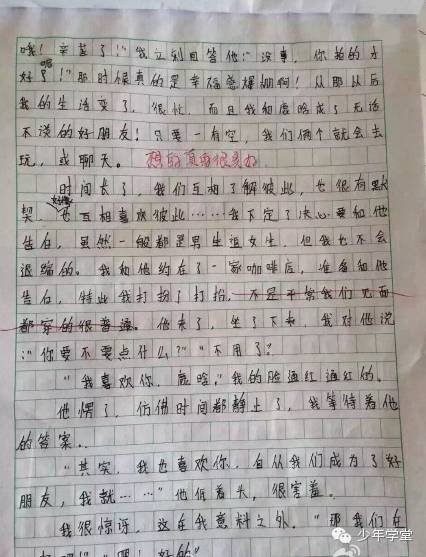 哦！辛苦了！"我立刻回答他："没事，你拍的才
好了呢！"那时候真的是幸福感爆棚啊！从那从后
我的生活变了，很忙，而且我和鹿晗成了无话
不谈的好朋友！只要一有空，我们俩个就会去
玩，或聊天。想的真的很美好
时间太了，我们互相了解彼此，也很有默
契，好像也互相喜欢彼此……我下定了决心要和他
告白，虽然一般都是男生追女生，但我也不会
退缩的。我和他约在了一家咖啡店，准备和他
告白，特此我打扮了打扮，不是平常我们见面
都穿的很普通。他来了，坐了下去，我对他说
："你要不要点什么？""不用了。"
"我喜欢你，鹿晗。"我的脸通红通红的。
他愣了，仿佛时间都静止了，我等待着他
的答案。
"其实，我也喜欢你，自从我们成为了好
朋友，我就……"他低着头，很害羞。
我很惊讶，这在我意料之外。"那我们在
少年学堂